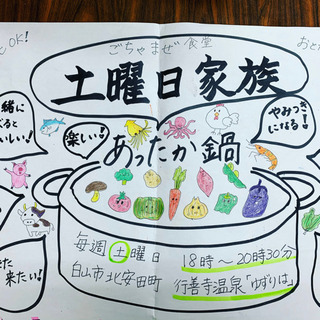 OK!
ごちゃまぜ食堂
土曜日家族
一緒に
楽しい!
あったか鍋
やみつき
になる!
来たい!
毎週土曜日
白山市北安田町
18時〜20時30分
行善寺温泉「ゆずりは」